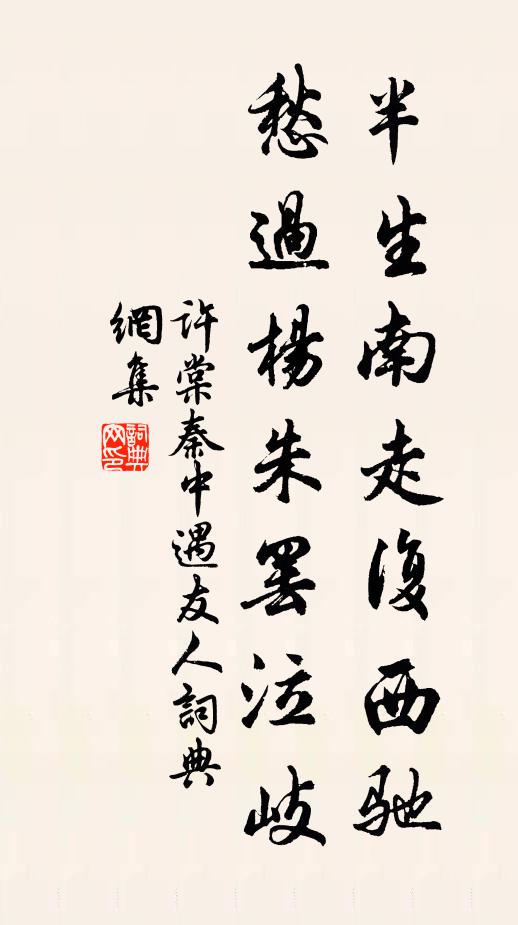 半生南走復西驰
愁過楊朱罢泣岐
许棠秦中遇友人詞典
網集
詞典
网印